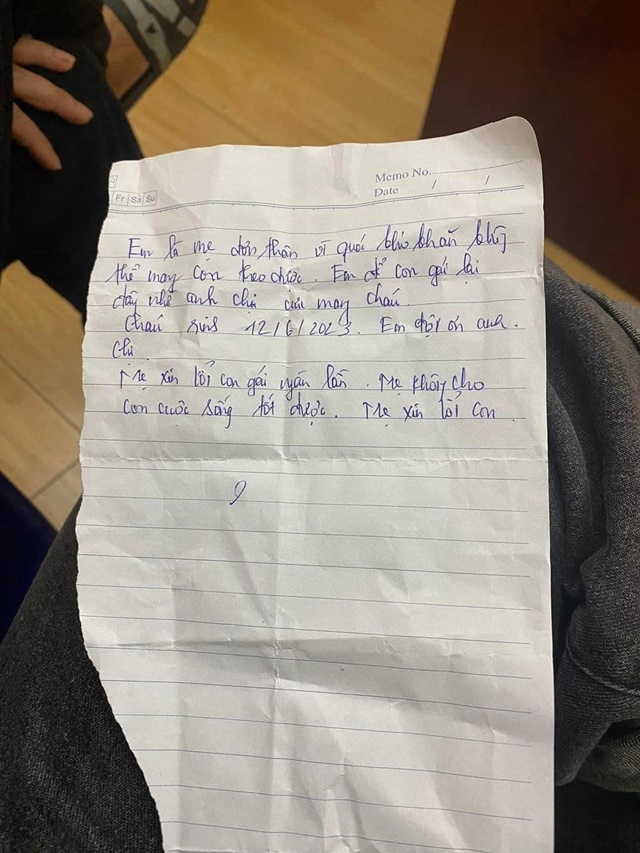 Memo No.
Date / /
Fr Sa Su
Em là mẹ đơn thân vì quá khó khăn khôg
thể may con theo được. Em để con gái lại
đây nhờ anh chị cưu may cháu.
Cháu sinh 12/6/2023. Em đội ơn anh.
chị.
Mẹ xin lỗi con gái ngàn lần. Mẹ không cho
con cuộc sống tốt được. Mẹ xin lỗi con.